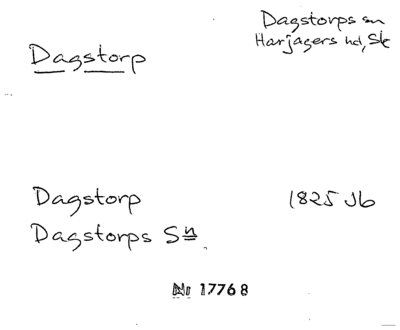 Dagstorps sn
Dagstorp
Harjagers hd, Sk
Dagstorp 1825 Jb
Dagstorps Sn
Nr 17768